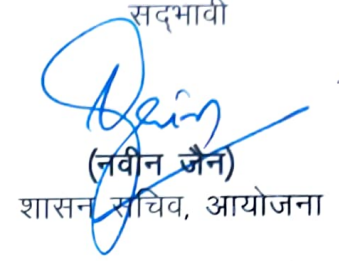 सद्भावी
(नवीन जैन)
शासन सचिव, आयोजना